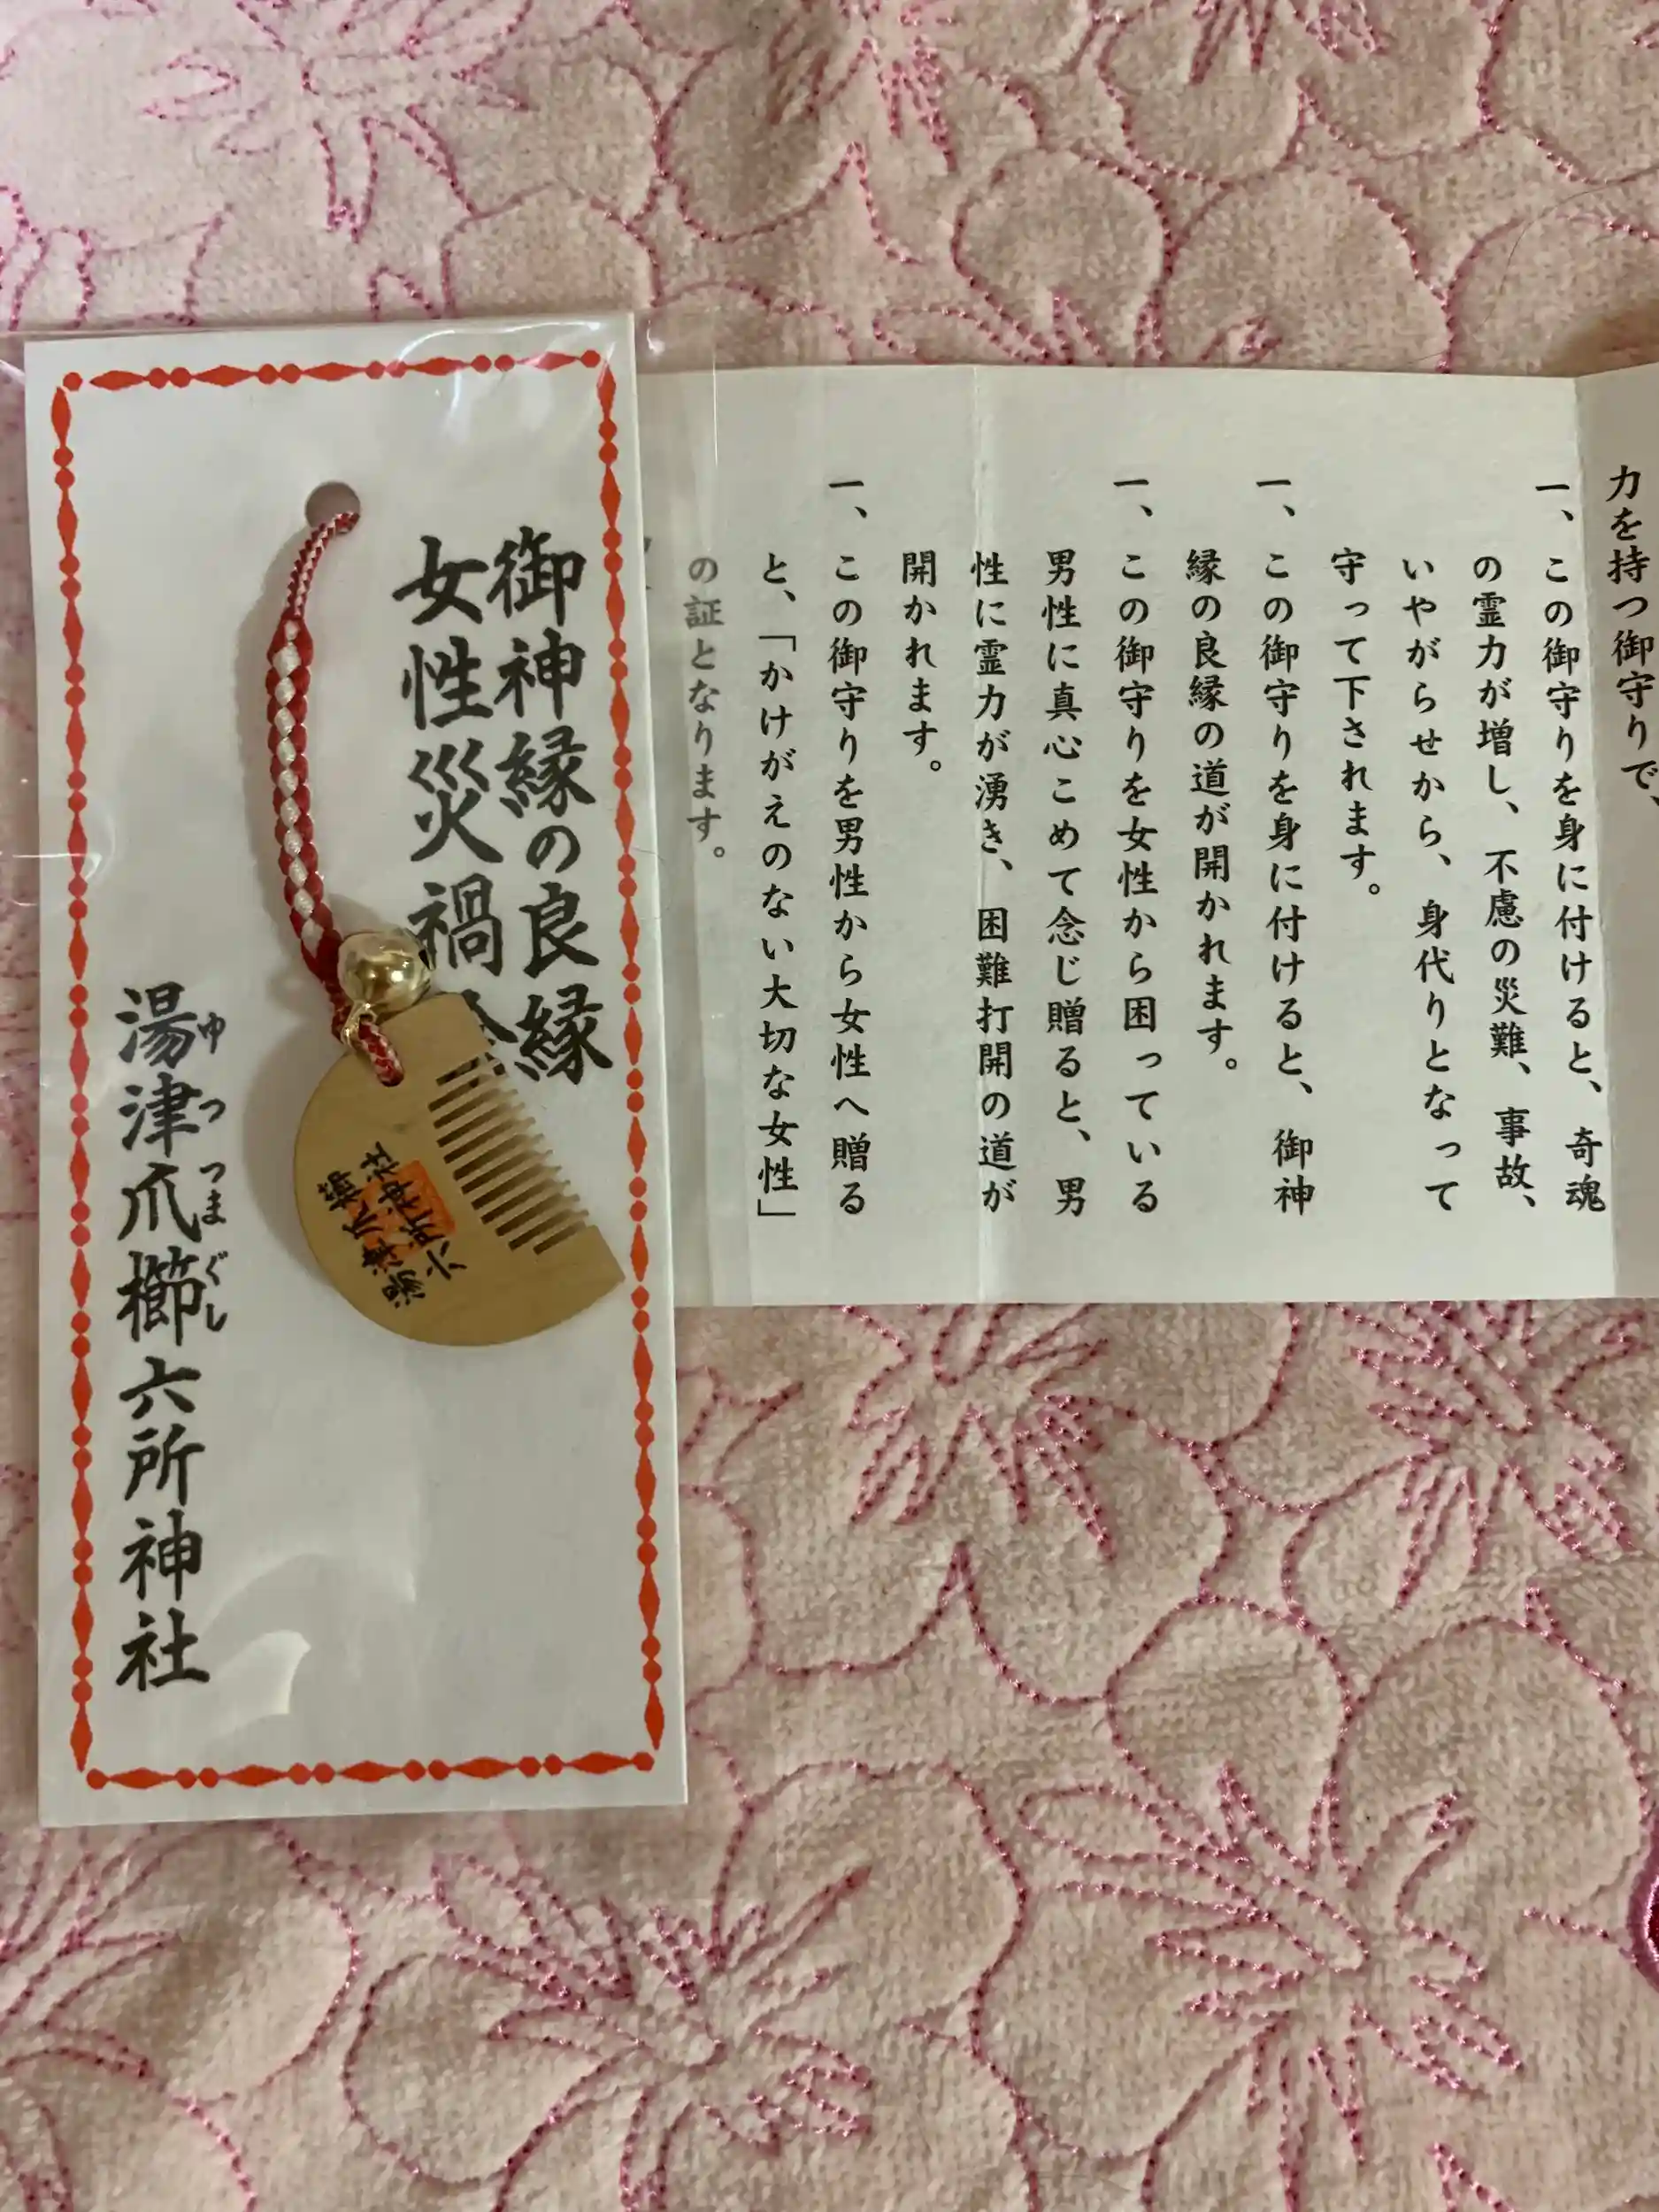 力を持つ御守りで、
一、この御守りを身に付けると、奇魂
の霊力が増し、不慮の災難、事故、
いやがらせから、身代りとなって
守って下されます。
一、この御守りを身に付けると、御神
縁の良縁の道が開かれます。
一、この御守りを女性から困っている
男性に真心こめて念じ贈ると、男
性に霊力が湧き、困難打開の道が
開かれます。
一、この御守りを男性から女性へ贈る
と、「かけがえのない大切な女性」
の証となります。
御神縁の良縁
女性災禍
湯津爪櫛六所神社
ゆつつまぐし
湯津爪櫛
六所神社